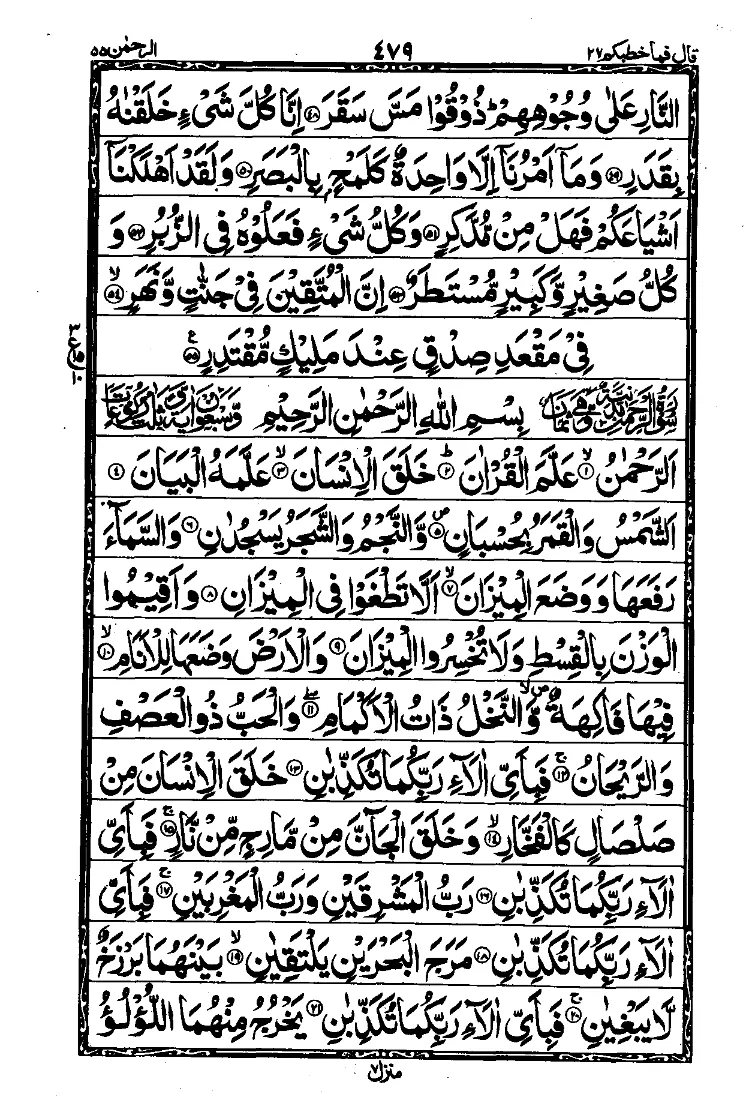 قال فما خطبكم ٢٧ ٤٧٩ الرحمٰن ٥٥
النَّارِ عَلٰى وُجُوْهِهِمْ ؕ ذُوْقُوْا مَسَّ سَقَرَ ﴿۴۸﴾ اِنَّا كُلَّ شَیْءٍ خَلَقْنٰهُ
بِقَدَرٍ ﴿۴۹﴾ وَمَاۤ اَمْرُنَاۤ اِلَّا وَاحِدَةٌ كَلَمْحٍۭ بِالْبَصَرِ ﴿۵۰﴾ وَلَقَدْ اَهْلَكْنَاۤ
اَشْیَاعَكُمْ فَهَلْ مِنْ مُّدَّكِرٍ ﴿۵۱﴾ وَكُلُّ شَیْءٍ فَعَلُوْهُ فِی الزُّبُرِ ﴿۵۲﴾ وَ
كُلُّ صَغِیْرٍ وَّكَبِیْرٍ مُّسْتَطَرٌ ﴿۵۳﴾ اِنَّ الْمُتَّقِیْنَ فِیْ جَنّٰتٍ وَّنَهَرٍ ۙ﴿۵۴﴾
فِیْ مَقْعَدِ صِدْقٍ عِنْدَ مَلِیْكٍ مُّقْتَدِرٍ ﴿۵۵﴾ ع
بِسْمِ اللّٰهِ الرَّحْمٰنِ الرَّحِیْمِ
اَلرَّحْمٰنُ ۙ﴿۱﴾ عَلَّمَ الْقُرْاٰنَ ؕ﴿۲﴾ خَلَقَ الْاِنْسَانَ ۙ﴿۳﴾ عَلَّمَهُ الْبَیَانَ ﴿۴﴾
اَلشَّمْسُ وَالْقَمَرُ بِحُسْبَانٍ ۪﴿۵﴾ وَّالنَّجْمُ وَالشَّجَرُ یَسْجُدٰنِ ﴿۶﴾ وَالسَّمَآءَ
رَفَعَهَا وَوَضَعَ الْمِیْزَانَ ۙ﴿۷﴾ اَلَّا تَطْغَوْا فِی الْمِیْزَانِ ﴿۸﴾ وَاَقِیْمُوا
الْوَزْنَ بِالْقِسْطِ وَلَا تُخْسِرُوا الْمِیْزَانَ ﴿۹﴾ وَالْاَرْضَ وَضَعَهَا لِلْاَنَامِ ۙ﴿۱۰﴾
فِیْهَا فَاكِهَةٌ ۪ۙ وَّالنَّخْلُ ذَاتُ الْاَكْمَامِ ۖ﴿۱۱﴾ وَالْحَبُّ ذُو الْعَصْفِ
وَالرَّیْحَانُ ۚ﴿۱۲﴾ فَبِاَیِّ اٰلَآءِ رَبِّكُمَا تُكَذِّبٰنِ ﴿۱۳﴾ خَلَقَ الْاِنْسَانَ مِنْ
صَلْصَالٍ كَالْفَخَّارِ ۙ﴿۱۴﴾ وَخَلَقَ الْجَآنَّ مِنْ مَّارِجٍ مِّنْ نَّارٍ ۚ﴿۱۵﴾ فَبِاَیِّ
اٰلَآءِ رَبِّكُمَا تُكَذِّبٰنِ ﴿۱۶﴾ رَبُّ الْمَشْرِقَیْنِ وَرَبُّ الْمَغْرِبَیْنِ ۚ﴿۱۷﴾ فَبِاَیِّ
اٰلَآءِ رَبِّكُمَا تُكَذِّبٰنِ ﴿۱۸﴾ مَرَجَ الْبَحْرَیْنِ یَلْتَقِیٰنِ ۙ﴿۱۹﴾ بَیْنَهُمَا بَرْزَخٌ
لَّا یَبْغِیٰنِ ۚ﴿۲۰﴾ فَبِاَیِّ اٰلَآءِ رَبِّكُمَا تُكَذِّبٰنِ ﴿۲۱﴾ یَخْرُجُ مِنْهُمَا اللُّؤْلُؤُ
منزل ٧